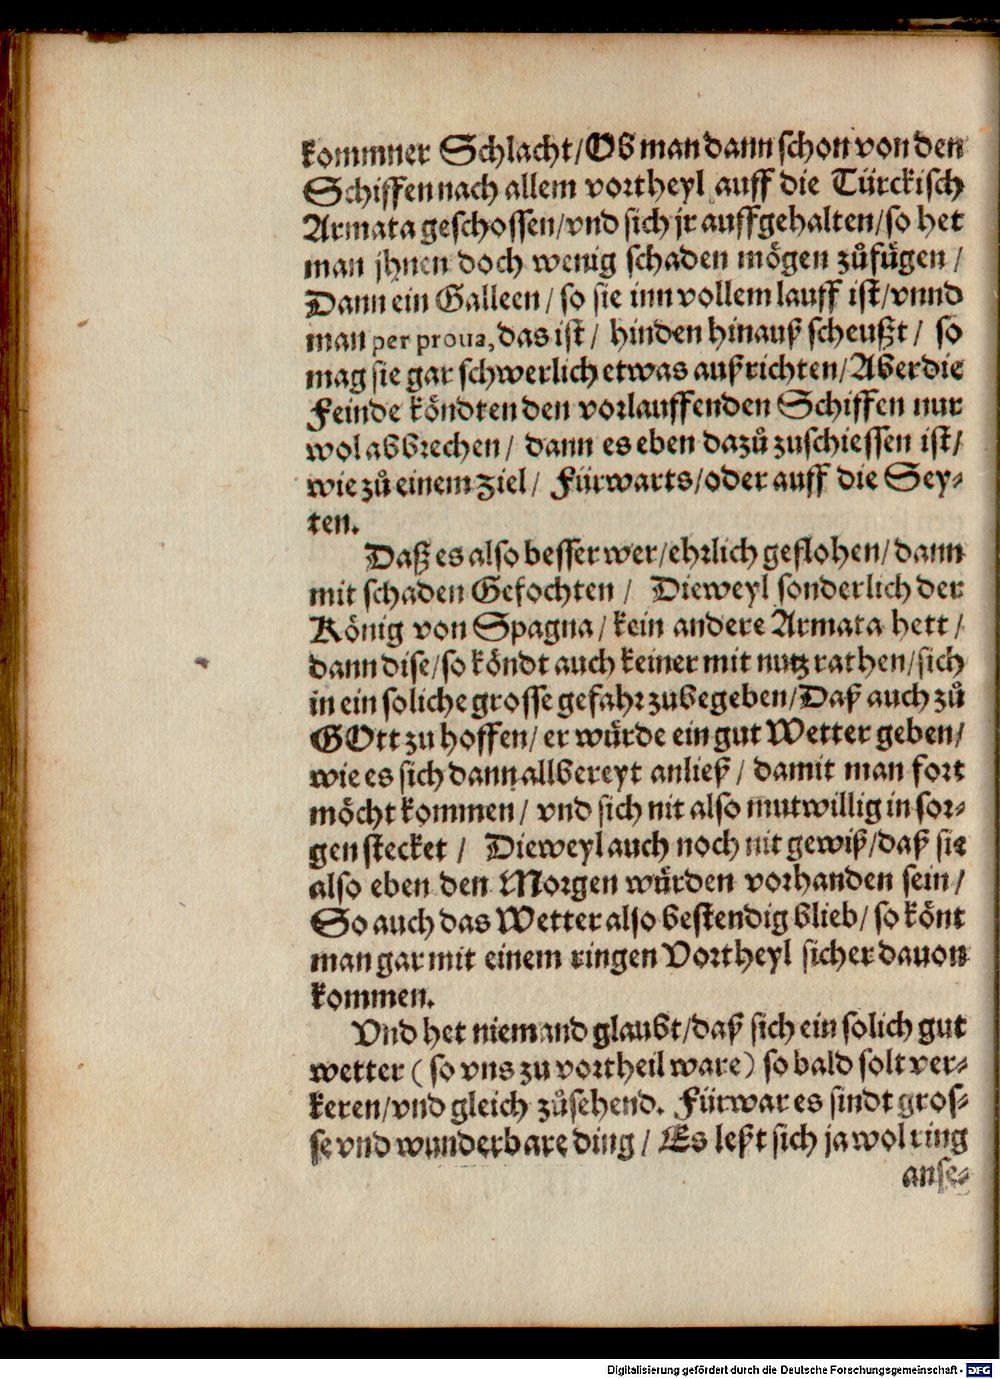 kommner Schlacht/Ob man dann schon von den
Schiffen nach allem vortheyl auff die Türckisch
Armata geschossen/vnd sich jr auffgehalten/so het
man jhnen doch wenig schaden mögen zůfügen /
Dann ein Galleen / so sie inn vollem lauff ist/vnnd
man per proua, das ist / hinden hinauß scheußt / so
mag sie gar schwerlich etwas außrichten/Aber die
Feinde köndten den vorlauffenden Schiffen nur
wol abbrechen / dann es eben dazů zuschiessen ist/
wie zů einem Ziel / Fürwarts/oder auff die Sey-
ten.
Daß es also besser wer/ehrlich geflohen/dann
mit schaden Gefochten / Dieweyl sonderlich der
König von Spagna / kein andere Armata hett /
dann dise/so köndt auch keiner mit nutz rathen/sich
in ein soliche grosse gefahr zubegeben/Daß auch zů
GOtt zu hoffen/ er würde ein gut Wetter geben/
wie es sich dann allbereyt anließ / damit man fort
möcht kommen / vnd sich nit also mutwillig in sor-
gen stecket / Dieweyl auch noch nit gewiß/daß sie
also eben den Morgen würden vorhanden sein /
So auch das Wetter also bestendig blieb/ so könt
man gar mit einem ringen Vortheyl sicher dauon
kommen.
Vnd het niemand glaubt/daß sich ein solich gut
wetter ( so vns zu vortheil ware) so bald solt ver-
keren/vnd gleich zůsehend. Fürwar es sindt gros-
se vnd wunderbare ding / Es leßt sich ja wol ring
anse-
Digitalisierung gefördert durch die Deutsche Forschungsgemeinschaft - DFG